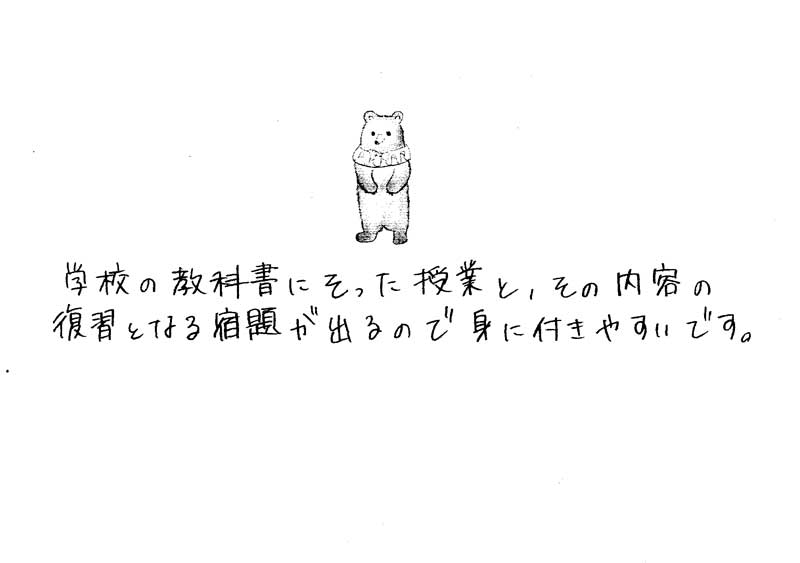 学校の教科書にそった授業と,その内容の
復習となる宿題が出るので身に付きやすいです。